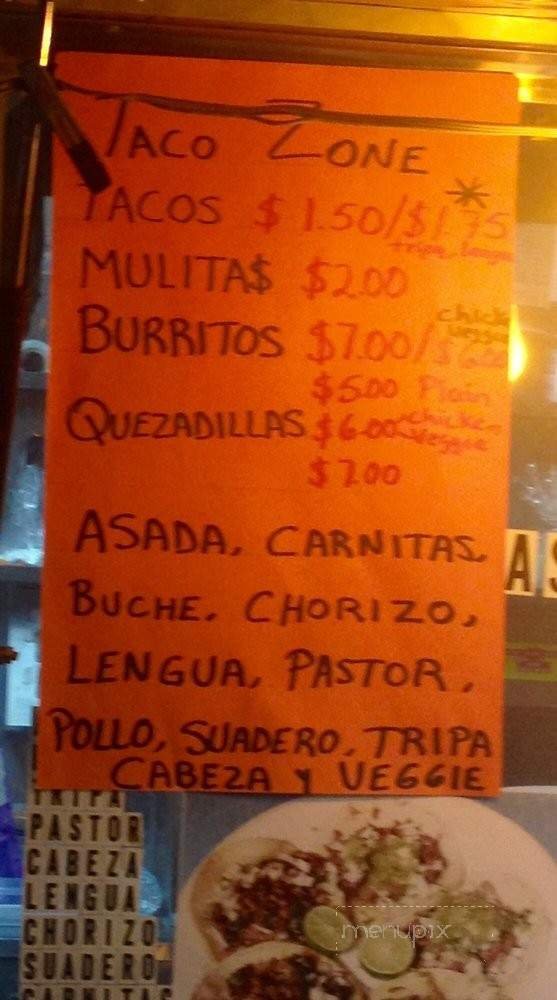 TACO ZONE
TACOS $1.50/$1.75 *
tripa, lengua
MULITA$ $2.00
chicken
veggie
BURRITOS $7.00/$6.00
$5.00 Plain
QUEZADILLAS $6.00 chicken
veggie
$7.00
ASADA, CARNITAS,
BUCHE, CHORIZO,
LENGUA, PASTOR,
POLLO, SUADERO, TRIPA
CABEZA Y VEGGIE
AS
TRIPA
PASTOR
CABEZA
LENGUA
CHORIZO
SUADERO
CARNITAS
menupix